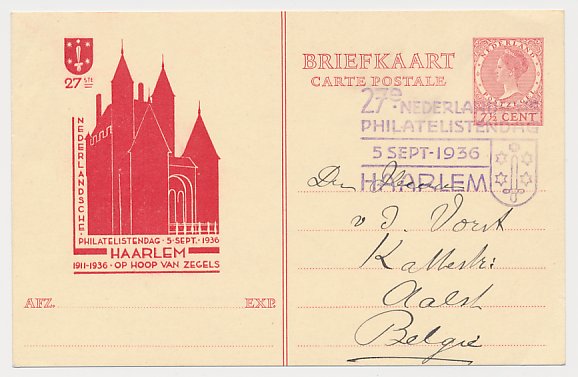 27STE
NEDERLANDSCHE
PHILATELISTENDAG · 5 · SEPT · 1936
HAARLEM
1911-1936 · OP HOOP VAN ZEGELS
AFZ. EXP.
BRIEFKAART
CARTE POSTALE
NEDERLAND
7½ CENT
27e NEDERLAND
PHILATELISTENDAG
5 SEPT-1936
HAARLEM
Den Heer
v. d. Vorst
Kattestr:
Aalst
België